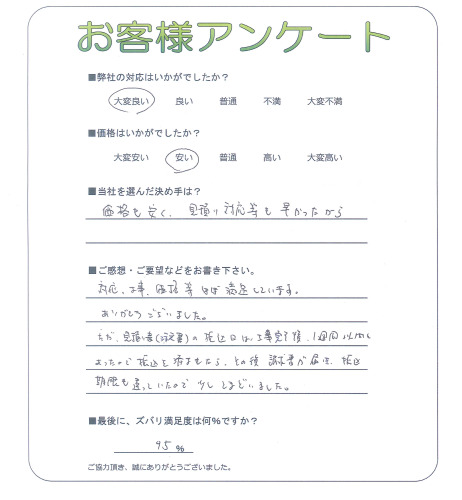 お客様アンケート
■弊社の対応はいかがでしたか?
大変良い 良い 普通 不満 大変不満
■価格はいかがでしたか?
大変安い 安い 普通 高い 大変高い
■当社を選んだ決め手は?
価格も安く、見積り対応等も早かったから
■ご感想・ご要望などをお書き下さい。
対応、工事、価格等ほぼ満足しています。
ありがとうございました。
ただ、見積書(注文書)の振込日は、工事完了後、1週間以内と
あったので振込を済ませたら、その後請求書が届き、振込
期限も違っていたので少しとまどいました。
■最後に、ズバリ満足度は何%ですか?
95 %
ご協力頂き、誠にありがとうございました。